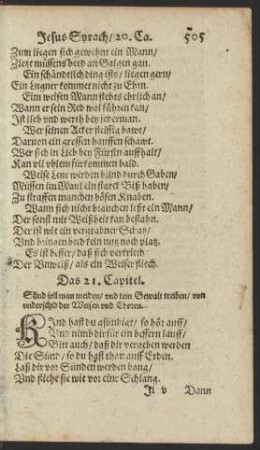 Jesus Syrach/ 20. Ca. 505
Zum liegen sich gewehnt ein Mann/
Zletzt müssens beed an Galgen gan.
Ein schändtlich ding ists/ liegen gern/
Ein Lugner kommet nicht zu Ehrn.
Ein weisen Mann stehts ehrlich an/
Wann er sein Red wol führen kan/
Ist lieb vnd werth bey jederman.
Wer seinen Acker fleissig bawt/
Daruon ein grossen hauffen schawt.
Wer sich in Lieb bey Fürstn auffhalt/
Kan vil vblem fürkommen bald.
Weise Leut werden blind durch Gaben/
Müssen im Maul ein starck Biß haben/
Zu straffen manchen bösen Knaben.
Wann sich nicht brauchen leßt ein Mann/
Der sonst mit Weißheit kan bestahn.
Der ist wie ein vergrabner Schatz/
Vnd bringen beed kein nutz noch platz.
Es ist besser/ daß sich verkriech
Der Vnweiß/ als ein Weiser siech.
Das 21. Capitel.
Sünd soll man meiden/ vnd kein Gewalt treiben/ von
vnderschid der Weisen vnd Thoren.
KInd hast du gsündigt/ so hör auff/
Vnd nimb dir für ein bessern lauff/
Bitt auch/ daß dir vergeben werden
Die Sünd/ so du hast than auff Erden.
Laß dir vor Sünden werden bang/
Vnd fliehe sie wie vor einr Schlang.
Ii v Dann